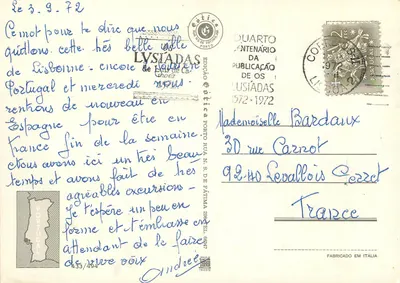 Le 3.9.72
Ce mot pour te dire que nous
quittons cette très belle ville
de Lisbonne. encore
Portugal et mercredi nous
rentrons de nouveau en
Espagne pour être en
France fin de la semaine.
Nous avons ici un très beau
temps et avons fait de très
agréables excursions -
je t'espère un peu en
forme et t'embrasse en
attendant de le faire
de vive voix
Andrée
LUSÍADAS
QUARTO
CENTENÁRIO
DA
PUBLICAÇÃO
DE OS
LUSÍADAS
1572-1972
Mademoiselle Bardaux
30 rue Carnot
92110 Levallois Perret
France
FABRICADO EM ITÁLIA